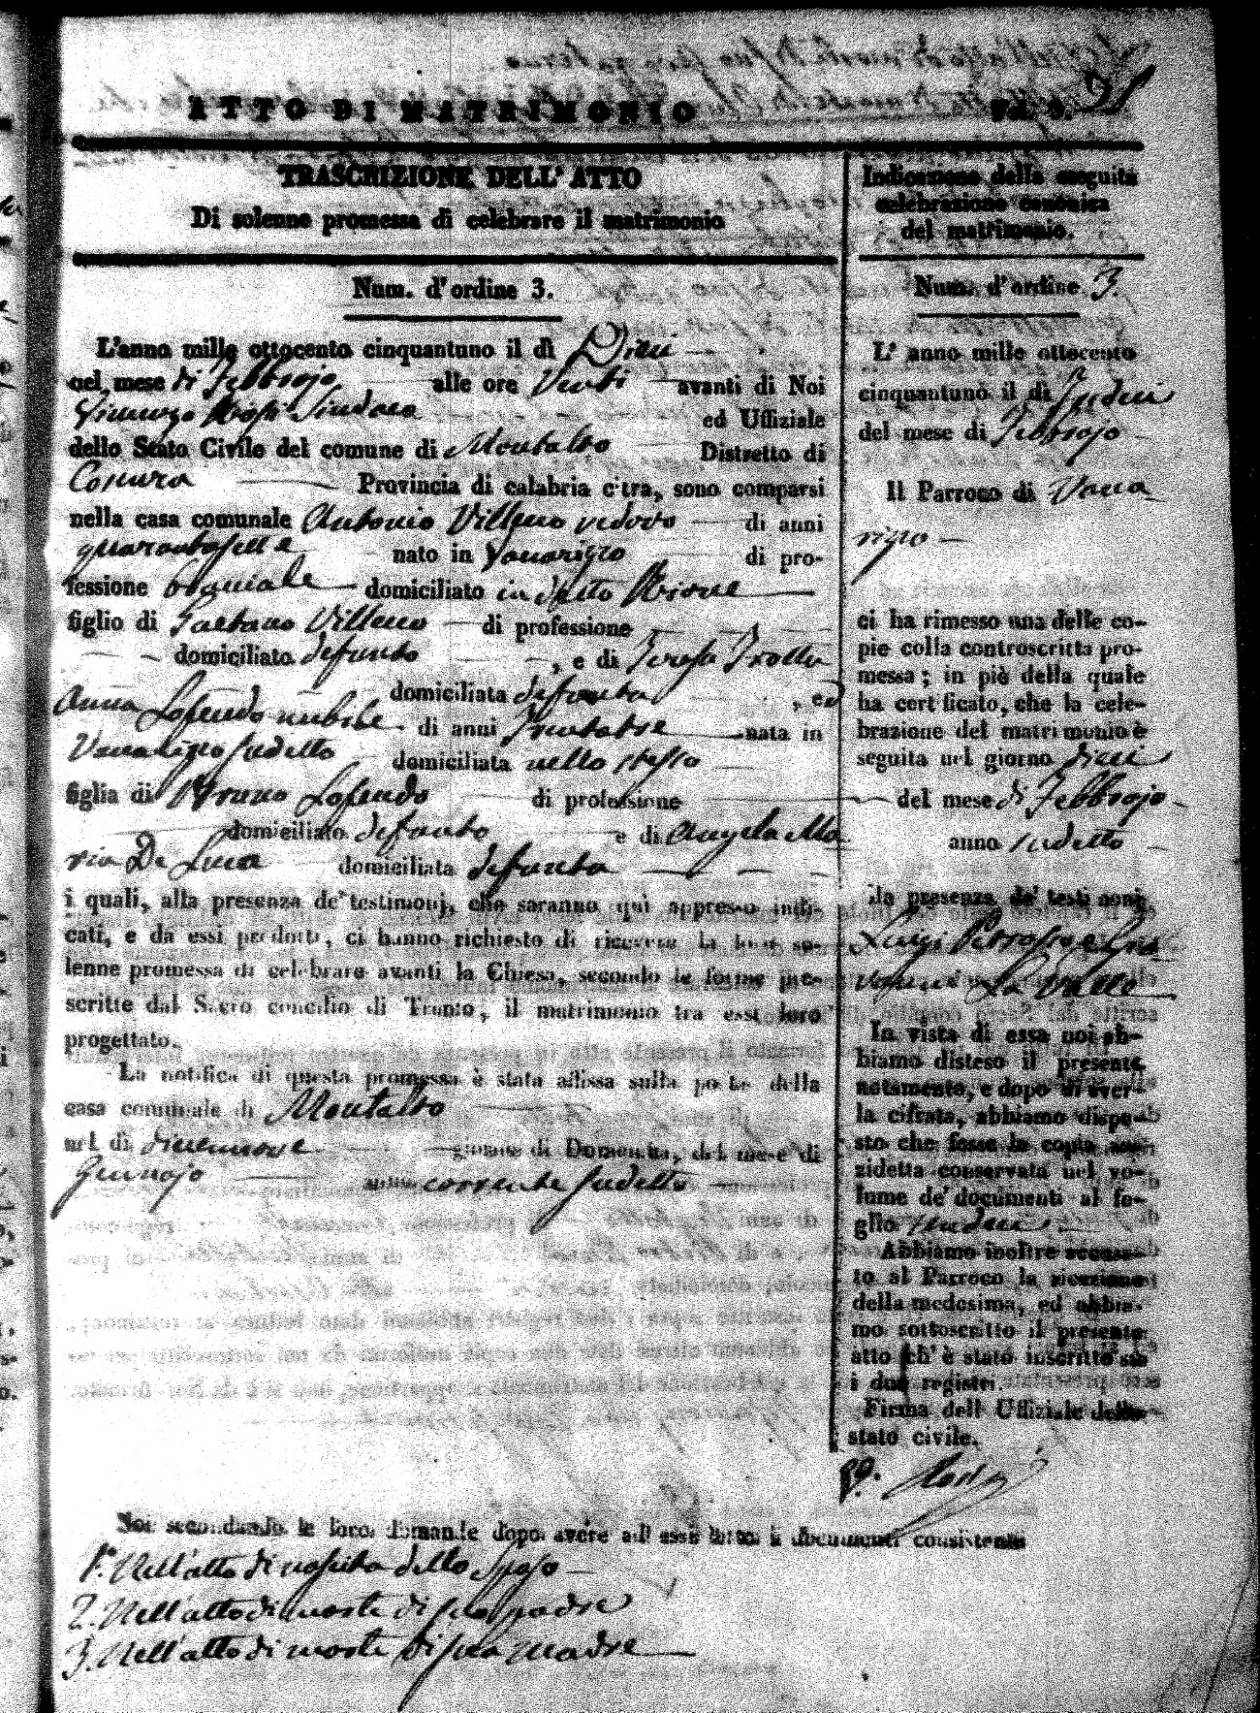 ATTO DI MATRIMONIO
TRASCRIZIONE DELL' ATTO
Di solenne promessa di celebrare il matrimonio
Num. d' ordine 3.
L'anno mille ottocento cinquantuno il dì Dieci
nel mese di Febbrajo alle ore Venti avanti di Noi
Sindaco ed Uffiziale
dello Stato Civile del comune di Montalto Distretto di
Cosenza Provincia di calabria citra, sono comparsi
nella casa comunale Antonio Villeno vedovo di anni
quarantasette nato in Vaccarizzo di pro-
fessione domiciliato in detto Rione
figlio di Gaetano Villeno di professione
domiciliato defunto , e di Teresa Trotta
domiciliata defunta , ed
Anna Lofendo nubile di anni Trentatre nata in
Vaccarizzo sudetto domiciliata nello stesso
figlia di Bruno Lofendo di professione
domiciliato defunto e di Angela Ma
ria De Luca domiciliata defunta
i quali, alla presenza de' testimonj, che saranno qui appresso indi-
cati, e da essi prodotti, ci hanno richiesto di ricevere la loro so-
lenne promessa di celebrare avanti la Chiesa, secondo le forme pre-
scritte dal Sacro concilio di Trento, il matrimonio tra essi loro
progettato.
La notifica di questa promessa è stata affissa sulla porta della
casa comunale di Montalto
nel dì diecinnove giorno di Domenica, del mese di
Gennajo anno corrente sudetto
Indicazione della seguita
celebrazione canonica
del matrimonio.
Num. d' ordine 3.
L' anno mille ottocento
cinquantuno il dì Sedici
del mese di Febbrajo
Il Parroco di Vacca
rizzo
ci ha rimesso una delle co-
pie colla controscritta pro-
messa; in piè della quale
ha certificato, che la cele-
brazione del matrimonio è
seguita nel giorno dieci
del mese di Febbrajo
anno sudetto
alla presenza de' testimonj
Luigi
La Valle
In vista di essa noi ab-
biamo disteso il presente
notamento, e dopo di aver-
la cifrata, abbiamo dispo-
sto che fosse la copia an-
zidetta conservata nel vo-
lume de' documenti al fo-
glio
Abbiamo inoltre accusa-
to al Parroco la ricezione
della medesima, ed abbia-
mo sottoscritto il presente
atto ch' è stato inscritto su
i due registri.
Firma dell Uffiziale dello
stato civile.
Noi secondando le loro domande dopo avere ad essi letto i documenti consistenti
1.° Nell'atto di nascita dello Sposo
2. Nell'atto di morte di suo padre
3. Nell'atto di morte di sua madre